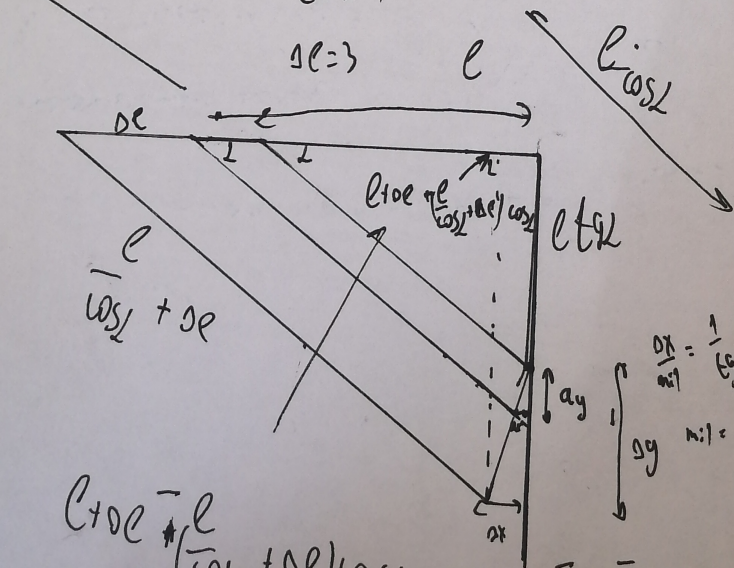 Δl=3
l
l/cosα
Δl
α
α
l+Δl-(l/cosα+Δl)cosα
l tgα
l/cosα + Δl
Δy
Δy
Δx/mil = 1/tg
mil =
Δx
l+Δl - (l/cosα + Δl)cosα